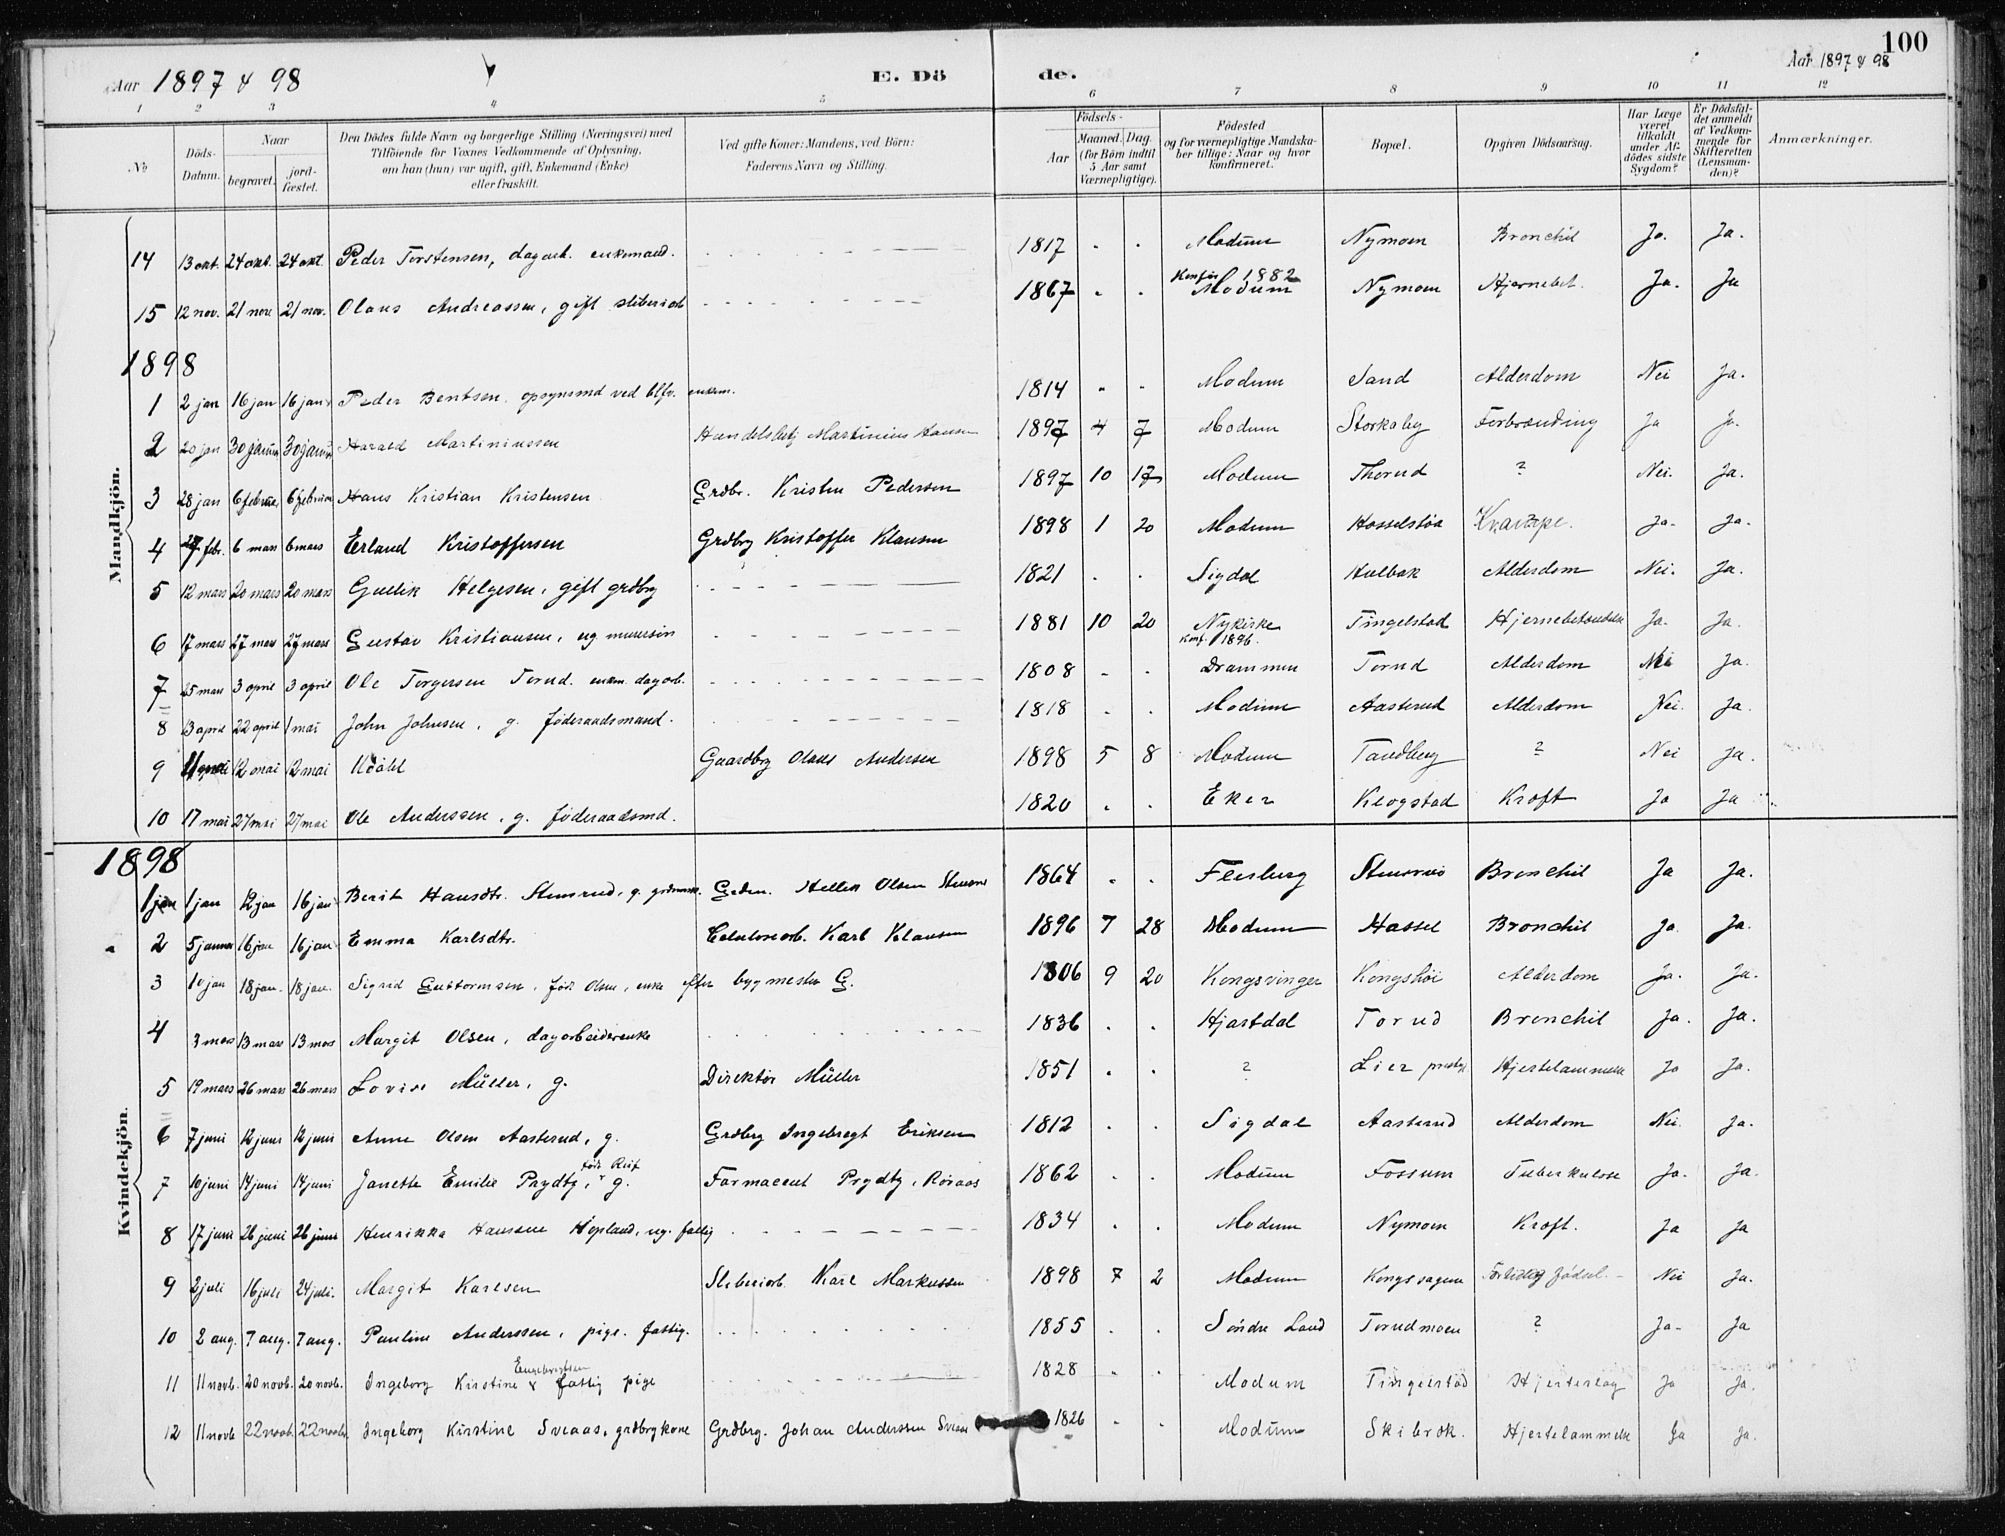 100
Aar 1897 & 98 E. Dö de. Aar 1897 & 98
1 2 3 4 5 6 7 8 9 10 11 12
No
Döds-Datum.
Naar
begravet. jord-fæstet.
Den Dödes fulde Navn og borgerlige Stilling (Næringsvei) med
Tilföiende for Voxnes Vedkommende af Oplysning,
om han (hun) var ugift, gift, Enkemand (Enke)
eller fraskilt.
Ved gifte Koner: Mandens, ved Börn:
Faderens Navn og Stilling.
Födsels-
Aar
Maaned. Dag.
(for Börn indtil
5 Aar samt
Værnepligtige).
Födested
og for værnepligtige Mandska-
ber tillige: Naar og hvor
konfirmeret.
Bopæl.
Opgiven Dödsaarsag.
Har Læge
været
tilkaldt
under Af-
dödes sidste
Sygdom?
Er Dödsfal-
det anmeldt
af Vedkom-
mende for
Skifteretten
(Lensman-
den)?
Anmærkninger.
Mandkjön.
14 13 okt. 24 okt. 24 okt. Peder Torstensen, dagarb. enkemand. 1817 Modum Nymoen Bronchit Ja. Ja.
15 12 nov. 21 nov. 21 nov. Olaus Andreassen, gift sliberiarb 1867 Konf. 1882 Modum Nymoen Hjernebet. Ja. Ja
1898
1 2 jan 16 jan 16 jan Peder Bentsen, opsynsmd ved blfv. enkem. 1814 Modum Sand Alderdom Nei Ja.
2 20 jan 30 januar 30 januar Harald Martiniussen Handelsbetj Martinius Hansen 1897 4 7 Modum Storkaby Forbrænding Ja Ja.
3 28 jan 6 februar 6 februar Hans Kristian Kristensen Grdbr. Kristen Pedersen 1897 10 17 Modum Thorud ? Nei. Ja.
4 27 febr. 6 mars 6 mars Erland Kristoffersen Grdbrg Kristoffer Klausen 1898 1 20 Modum Hasselstøa Krampe. Ja. Ja.
5 12 mars 20 mars 20 mars Gullik Helgesen, gift grdbrg 1821 Sigdal Hulbak Alderdom Nei. Ja.
6 17 mars 27 mars 27 mars Gustav Kristiansen, ug murersøn 1881 10 20 Nykirke Konf. 1896. Tingelstad Hjernebetændelse Ja. Ja.
7 25 mars 3 april 3 april Ole Torgersen Torud. enkm. dagarb. 1808 Drammen Torud Alderdom Nei Ja.
8 13 april 22 april 1 mai John Johnsen, g. føderaadsmand. 1818 Modum Aasterud Alderdom Nei. Ja.
9 12 mai 12 mai Udøbt Gaardbrg Olaus Andersen 1898 5 8 Modum Tandberg ? Nei Ja.
10 17 mai 27 mai 27 mai Ole Anderssen, g. føderaadsmd. 1820 Eker Klogstad Kræft Ja Ja
1898
Kvindekjön.
1 jan 1 jan 12 jan 16 jan Berit Hansdtr. Stensrud, g. Hellik Olsen 1864 Flesberg Bronchit Ja Ja.
2 5 januar 16 jan 16 jan Emma Karlsdtr. Celulosearb. Karl Klausen 1896 7 28 Modum Hassel Bronchit Ja Ja.
3 10 jan 18 jan. 18 jan. Sigrid Guttormsen, født Olsen, enke efter bygmester G. 1806 9 20 Kongsvinger Kongshøi Alderdom Ja. Ja.
4 3 mars 13 mars 13 mars Margit Olsen, dagarbeiderenke 1836 Hjartdal Torud Bronchit Ja. Ja.
5 19 mars 26 mars 26 mars Lovise Müller, g. Direktør Müller 1851 ? Lier prestegj Hjertelammelse Ja Ja.
6 7 juni 12 juni 12 juni Anne Olsen Aasterud, g. Grdbrg Ingebregt Eriksen 1812 Sigdal Aasterud Alderdom Nei. Ja.
7 10 juni 14 juni 14 juni Janette Emilie Prydtz, født g. Farmaceut Prydtz, Røraas 1862 Modum Fossum Tuberkulose Ja. Ja.
8 17 juni 26 juni 26 juni Henrikka Hansen Hopland, ug. fattig 1834 Modum Nymoen Kræft. Ja Ja
9 2 juli 16 juli 24 juli. Margit Karlsen Sliberiarb. Karl Markussen 1898 7 2 Modum Kongssagene Fortidlig fødsel Nei Ja.
10 2 aug. 7 aug. 7 aug. Pauline Anderssen, pige. fattig. 1855 Søndre Land Torudmoen ? Ja. Ja
11 11 novb. 20 novb. 20 novb. Ingeborg Kirstine Engebretsen fattig pige 1828 Modum Tingelstad Hjerteslag Ja Ja.
12 11 novb 22 novb. 22 novbr Ingeborg Kirstine Sveaas, grdbrgkone Grdbrg. Johan Anderssen Sveaas 1826 Modum Skibræk. Hjertelammelse Ja Ja.